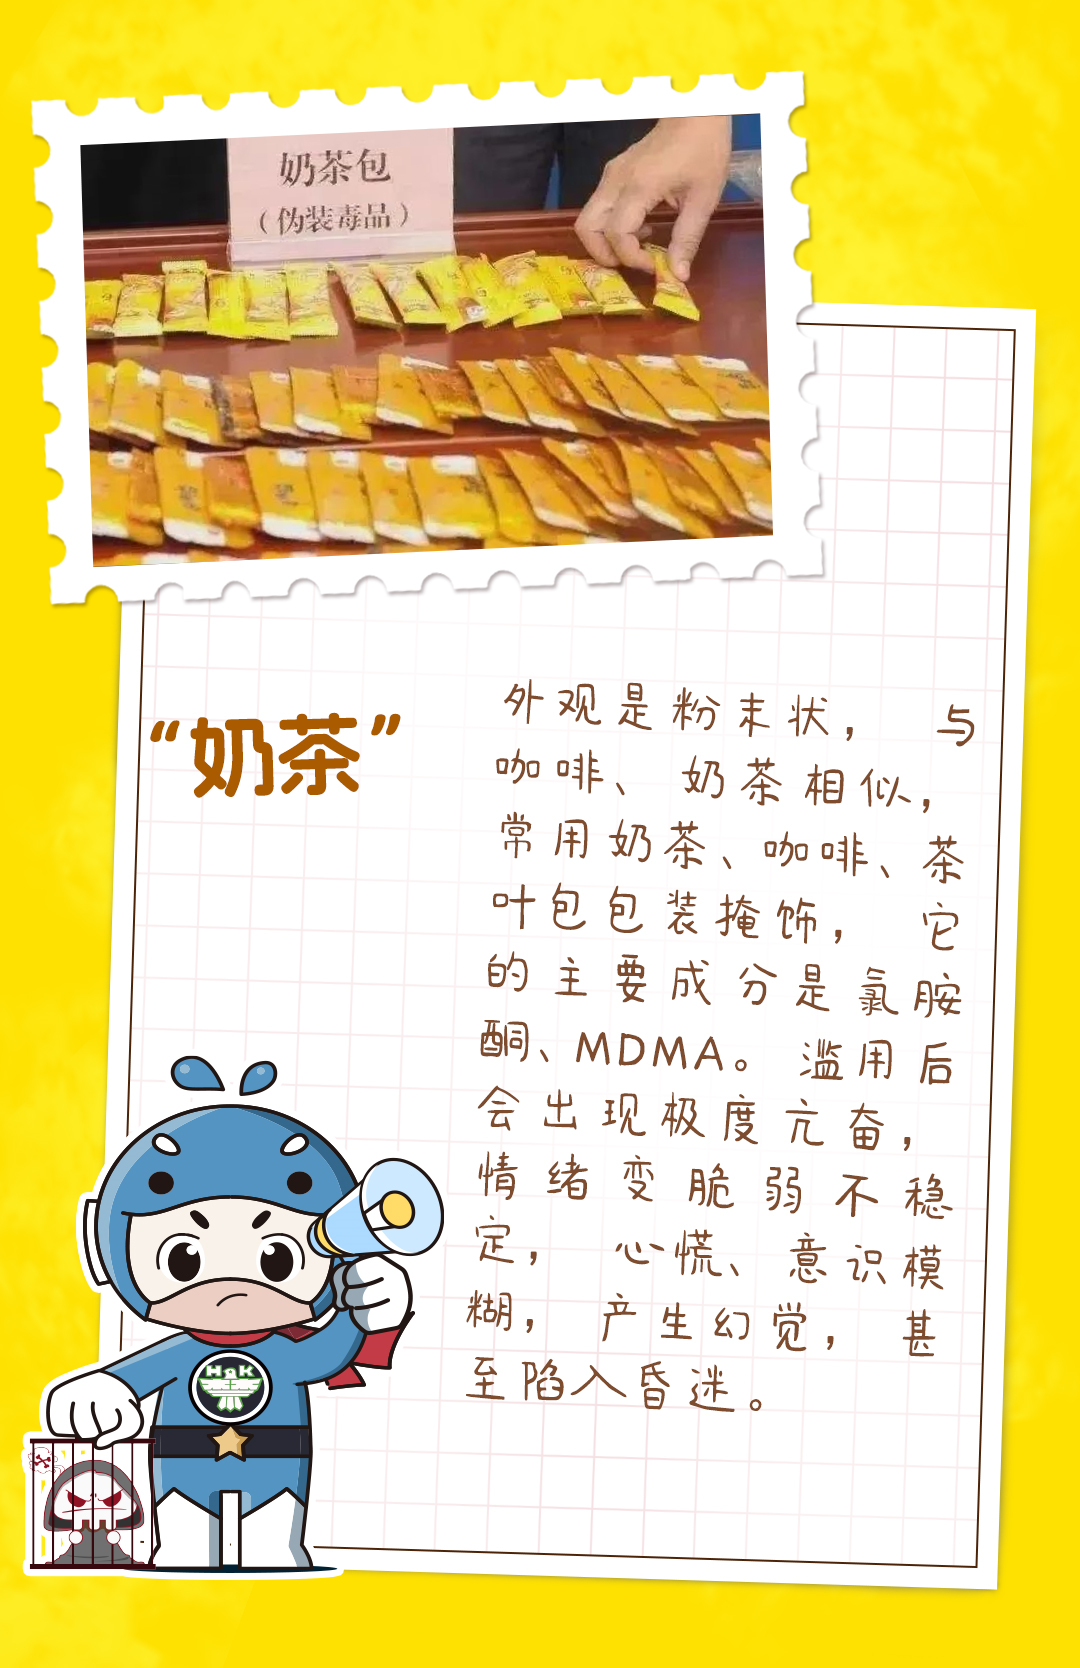 奶茶包
（伪装毒品）
“奶茶”
外观是粉末状， 与
咖啡、奶茶相似，
常用奶茶、咖啡、茶
叶包包装掩饰， 它
的主要成分是氯胺
酮、MDMA。滥用后
会出现极度亢奋，
情绪变脆弱不稳
定， 心慌、意识模
糊， 产生幻觉， 甚
至陷入昏迷。